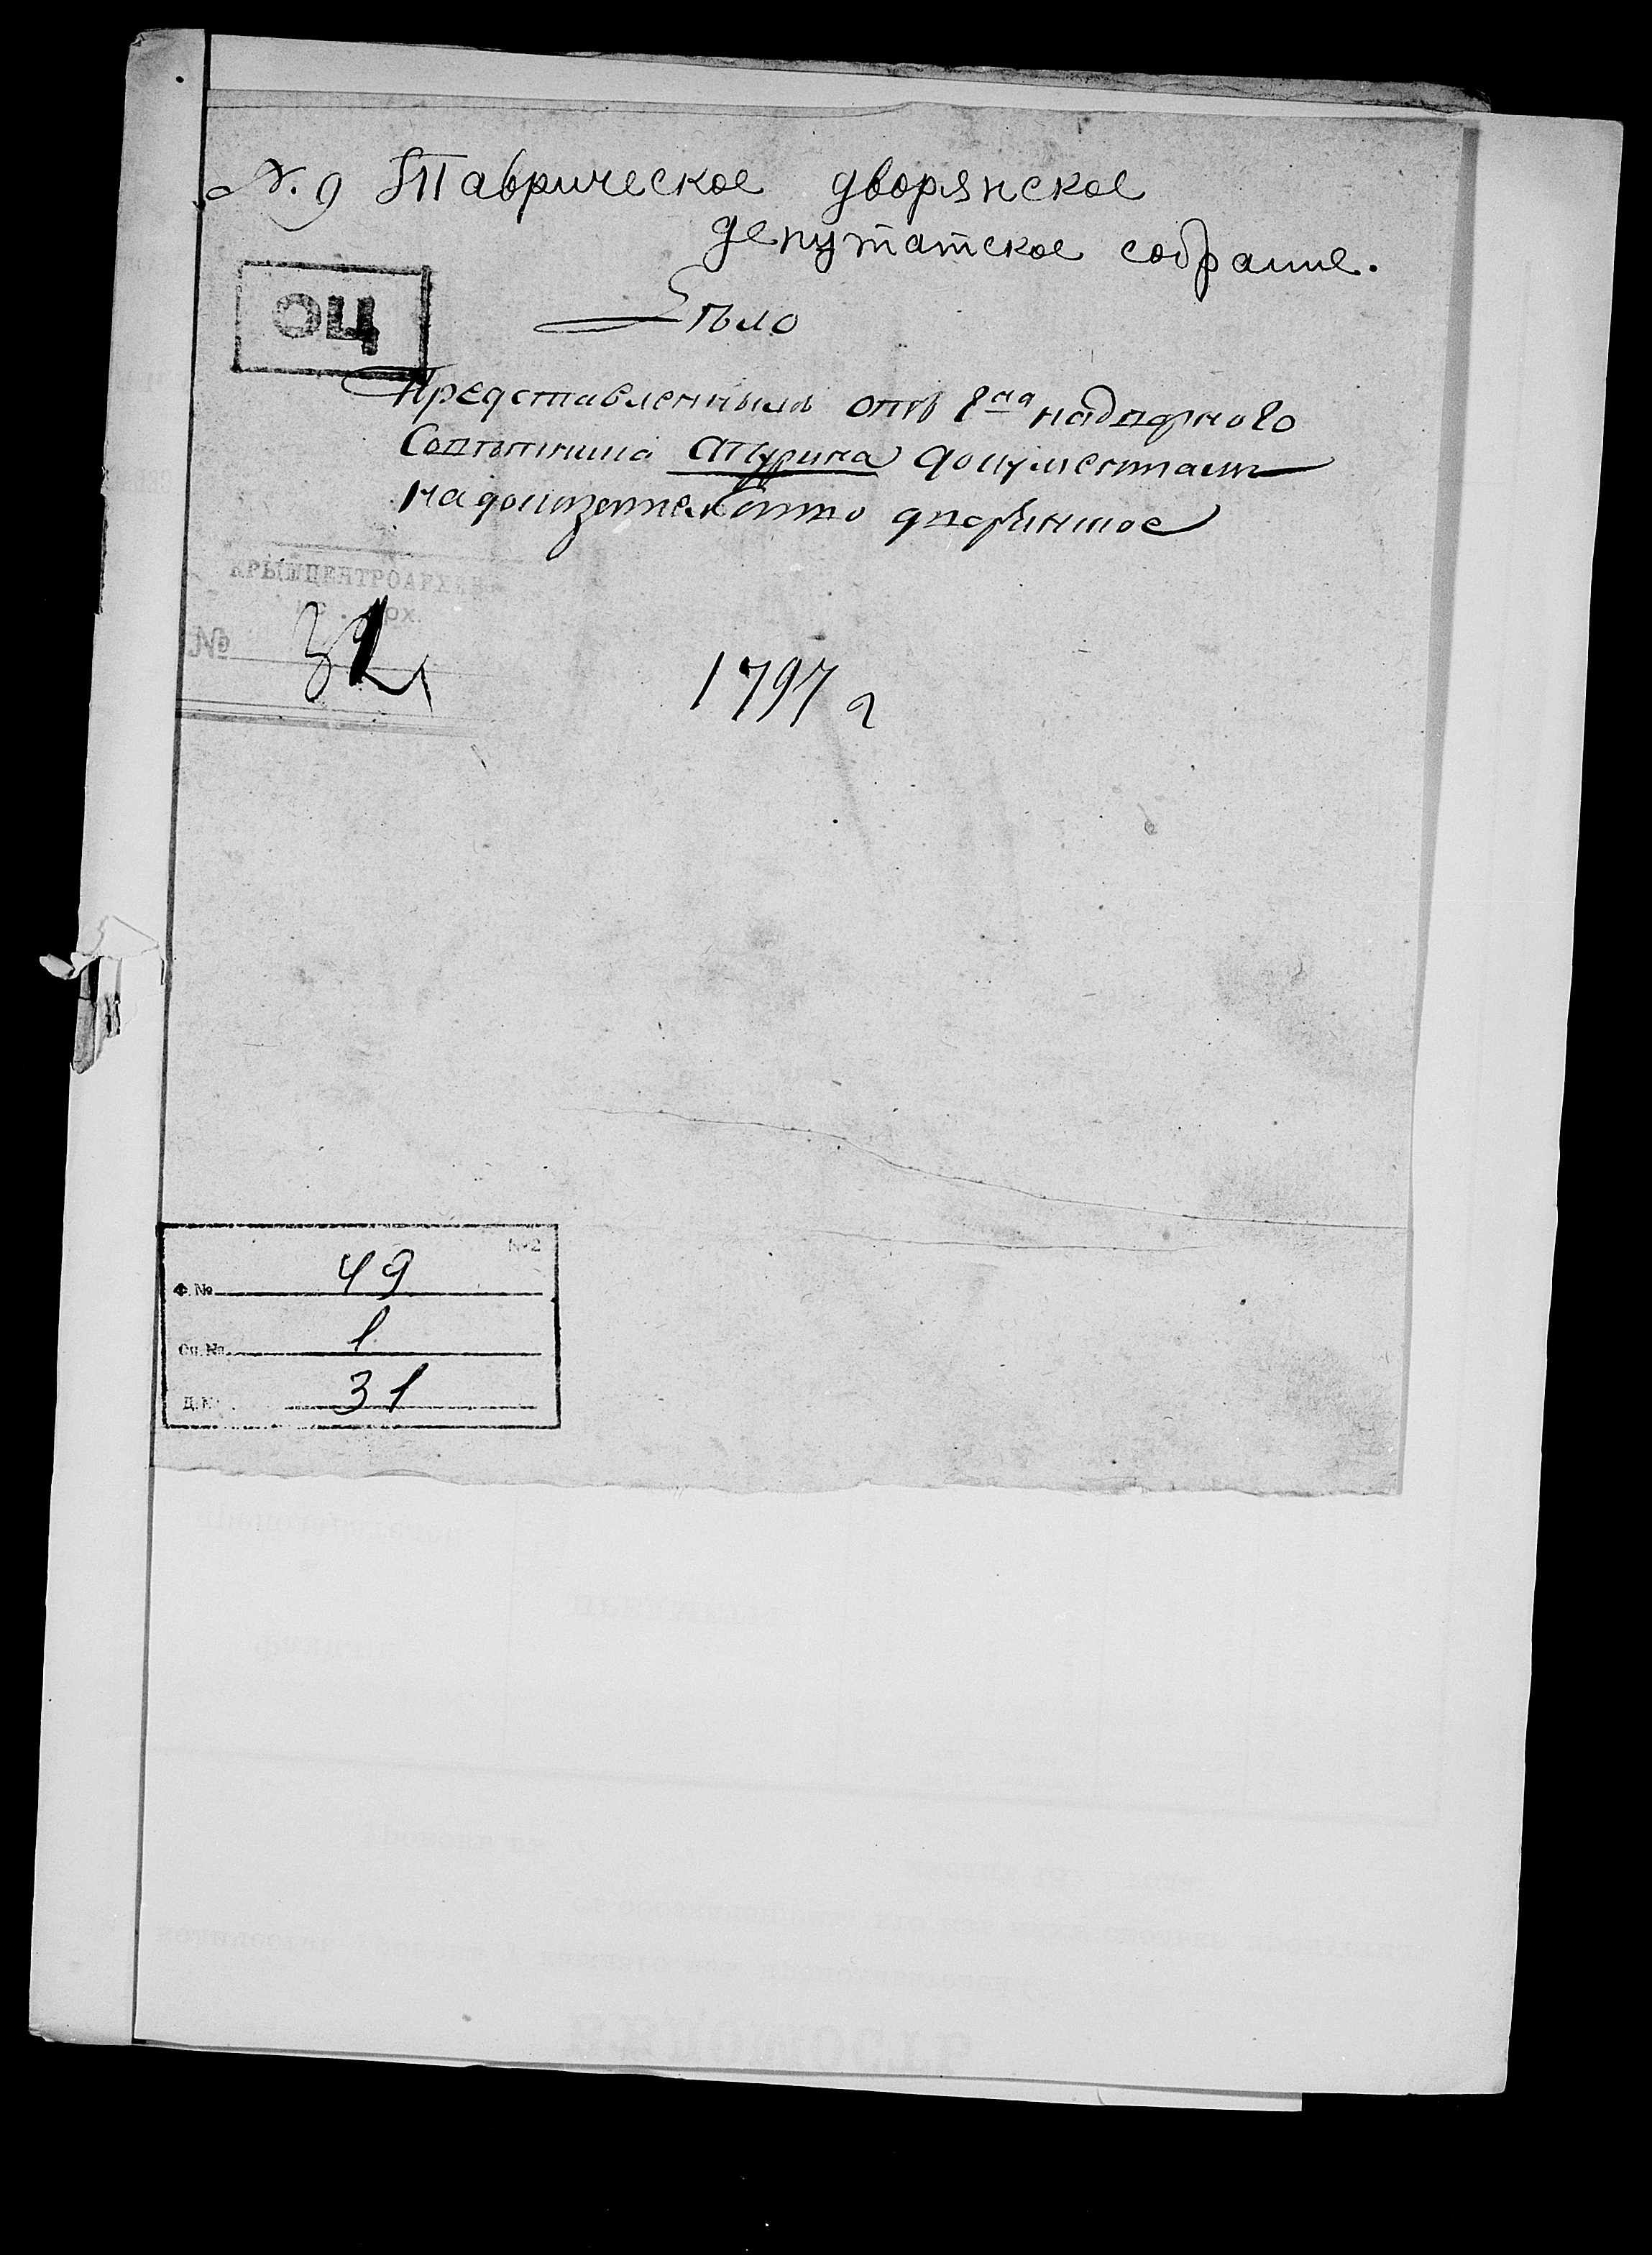 №. 9 Таврическое дворянское
депутатское собрание.
ОЦ
Дѣло
Представленнымъ отъ Гна надворного
Совѣтника Атурина документамъ
на доказателство дворянское
КРЫМЦЕНТРОАРХИВ
№ 32
1797 г
№2
Ф. № 49
Оп. № 1
Д. № 31